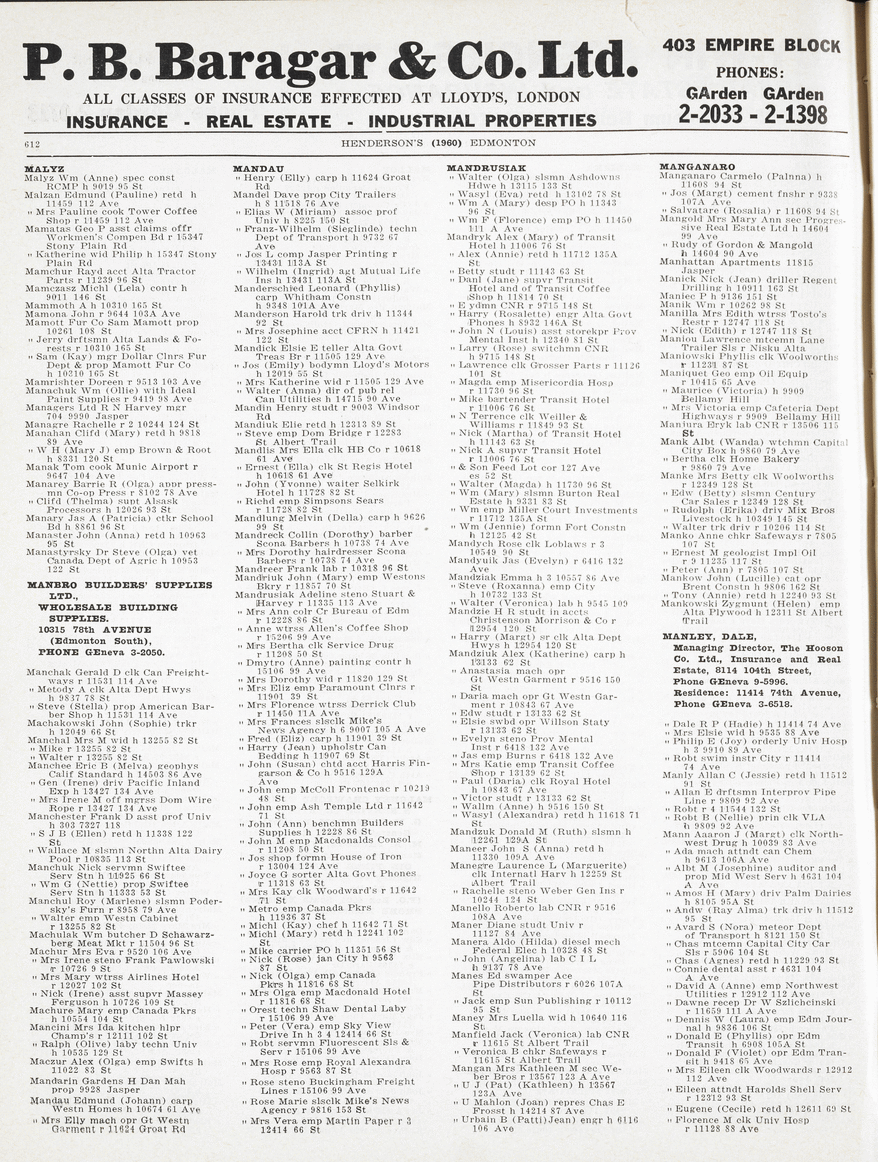 P. B. Baragar & Co. Ltd.
ALL CLASSES OF INSURANCE EFFECTED AT LLOYD'S, LONDON
INSURANCE - REAL ESTATE - INDUSTRIAL PROPERTIES
403 EMPIRE BLOCK
PHONES:
GArden GArden
2-2033 - 2-1398
612
HENDERSON'S (1960) EDMONTON
MALYZ
Malyz Wm (Anne) spec const
RCMP h 9019 95 St
Malzan Edmund (Pauline) retd h
11459 112 Ave
" Mrs Pauline cook Tower Coffee
Shop r 11459 112 Ave
Mamatas Geo P asst claims offr
Workmen's Compen Bd r 15347
Stony Plain Rd
" Katherine wid Philip h 15347 Stony
Plain Rd
Mamchur Rayd acct Alta Tractor
Parts r 11239 96 St
Mamczasz Michl (Lela) contr h
9011 146 St
Mammoth A h 10310 165 St
Mamona John r 9644 103A Ave
Mamott Fur Co Sam Mamott prop
10261 108 St
" Jerry drftsmn Alta Lands & Fo-
rests r 10310 165 St
" Sam (Kay) mgr Dollar Clnrs Fur
Dept & prop Mamott Fur Co
h 10310 165 St
Mamrishter Doreen r 9513 103 Ave
Manachuk Wm (Ollie) with Ideal
Paint Supplies r 9419 98 Ave
Managers Ltd R N Harvey mgr
704 9990 Jasper
Managre Rachelle r 2 10244 124 St
Manahan Clifd (Mary) retd h 9818
89 Ave
" W H (Mary J) emp Brown & Root
h 8331 120 St
Manak Tom cook Munic Airport r
9647 104 Ave
Manarey Barrie R (Olga) appr press-
mn Co-op Press r 8102 78 Ave
" Clifd (Thelma) supt Alsask
Processors h 12026 93 St
Manary Jas A (Patricia) ctkr School
Bd h 8861 96 St
Manaster John (Anna) retd h 10963
95 St
Manastyrsky Dr Steve (Olga) vet
Canada Dept of Agric h 10953
122 St
MANBRO BUILDERS' SUPPLIES
LTD.,
WHOLESALE BUILDING
SUPPLIES.
10315 78th AVENUE
(Edmonton South),
PHONE GEneva 3-2050.
Manchak Gerald D clk Can Freight-
ways r 11531 114 Ave
" Metody A clk Alta Dept Hwys
h 9837 78 St
" Steve (Stella) prop American Bar-
ber Shop h 11531 114 Ave
Machakowski John (Sophie) trkr
h 12049 66 St
Manchal Mrs M wid h 13255 82 St
" Mike r 13255 82 St
" Walter r 13255 82 St
Manchee Eric B (Melva) geophys
Calif Standard h 14503 86 Ave
" Gen (Irene) driv Pacific Inland
Exp h 13427 134 Ave
" Mrs Irene M off mgrss Dom Wire
Rope r 13427 134 Ave
Manchester Frank D asst prof Univ
h 303 7327 118
" S J B (Ellen) retd h 11338 122
St
" Wallace M slsmn Northn Alta Dairy
Pool r 10835 113 St
Manchuk Nick servmn Swiftee
Serv Stn h 11925 66 St
" Wm G (Nettie) prop Swiftee
Serv Stn h 11333 53 St
Manchul Roy (Marlene) slsmn Poder-
sky's Furn r 8958 79 Ave
" Walter emp Westn Cabinet
r 13255 82 St
Machulak Wm butcher D Schawarz-
berg Meat Mkt r 11504 96 St
Machur Mrs Eva r 9520 106 Ave
" Mrs Irene steno Frank Pawlowski
r 10726 9 St
" Mrs Mary wtrss Airlines Hotel
r 12027 102 St
" Nick (Irene) asst supvr Massey
Ferguson h 10726 109 St
Machure Mary emp Canada Pkrs
h 10554 104 St
Mancini Mrs Ida kitchen hlpr
Champ's r 12111 102 St
" Ralph (Olive) laby techn Univ
h 10535 129 St
Maczur Alex (Olga) emp Swifts h
11022 83 St
Mandarin Gardens H Dan Mah
prop 9928 Jasper
Mandau Edmund (Johann) carp
Westn Homes h 10674 61 Ave
" Mrs Elly mach opr Gt Westn
Garment r 11624 Groat Rd
MANDAU
" Henry (Elly) carp h 11624 Groat
Rd
Mandel Dave prop City Trailers
h 8 11518 76 Ave
" Elias W (Miriam) assoc prof
Univ h 8225 150 St
" Franz-Wilhelm (Sieglinde) techn
Dept of Transport h 9732 67
Ave
" Jos L comp Jasper Printing r
13431 113A St
" Wilhelm (Ingrid) agt Mutual Life
Ins h 13431 113A St
Manderschied Leonard (Phyllis)
carp Whitham Constn
h 9348 101A Ave
Manderson Harold trk driv h 11344
92 St
" Mrs Josephine acct CFRN h 11421
122 St
Mandick Elsie E teller Alta Govt
Treas Br r 11505 129 Ave
" Jos (Emily) bodymn Lloyd's Motors
h 12019 55 St
" Mrs Katherine wid r 11505 129 Ave
" Walter (Anna) dir of pub rel
Can Utilities h 14715 90 Ave
Mandin Henry studt r 9003 Windsor
Rd
Mandiuk Elie retd h 12313 89 St
" Steve emp Dom Bridge r 12283
St Albert Trail
Mandlis Mrs Ella clk HB Co r 10618
61 Ave
" Ernest (Ella) clk St Regis Hotel
h 10618 61 Ave
" John (Yvonne) waiter Selkirk
Hotel h 11728 82 St
" Richd emp Simpsons Sears
r 11728 82 St
Mandlung Melvin (Della) carp h 9626
99 St
Mandreck Collin (Dorothy) barber
Scona Barbers h 10738 74 Ave
" Mrs Dorothy hairdresser Scona
Barbers r 10738 74 Ave
Mandreer Frank lab r 10318 96 St
Mandriuk John (Mary) emp Westons
Bkry r 11857 70 St
Mandrusiak Adeline steno Stuart &
Harvey r 11335 113 Ave
" Mrs Ann colr Cr Bureau of Edm
r 12228 86 St
" Anne wtrss Allen's Coffee Shop
r 15206 99 Ave
" Mrs Bertha clk Service Drug
r 11208 50 St
" Dmytro (Anne) painting contr h
15106 99 Ave
" Mrs Dorothy wid r 11820 129 St
" Mrs Eliz emp Paramount Clnrs r
11901 39 St
" Mrs Florence wtrss Derrick Club
r 11450 11A Ave
" Mrs Frances slsclk Mike's
News Agency h 6 9007 105 A Ave
" Fred (Eliz) carp h 11901 39 St
" Harry (Jean) upholstr Can
Bedding h 11907 69 St
" John (Susan) chtd acct Harris Fin-
garson & Co h 9516 129A
Ave
" John emp McColl Frontenac r 10219
48 St
" John emp Ash Temple Ltd r 11642
71 St
" John (Ann) benchmn Builders
Supplies h 12228 86 St
" John M emp Macdonalds Consol
r 11208 50 St
" Jos shop formn House of Iron
r 13004 124 Ave
" Joyce G sorter Alta Govt Phones
r 11318 63 St
" Mrs Kay clk Woodward's r 11642
71 St
" Metro emp Canada Pkrs
h 11936 37 St
" Michl (Kay) chef h 11642 71 St
" Michl (Mary) retd h 12241 102
St
" Mike carrier PO h 11351 56 St
" Nick (Rose) jan City h 9563
87 St
" Nick (Olga) emp Canada
Pkrs h 11816 68 St
" Mrs Olga emp Macdonald Hotel
r 11816 68 St
" Orest techn Shaw Dental Laby
r 15106 99 Ave
" Peter (Vera) emp Sky View
Drive In h 3 4 12414 66 St
" Robt servmn Fluorescent Sls &
Serv r 15106 99 Ave
" Mrs Rose emp Royal Alexandra
Hosp r 9563 87 St
" Rose steno Buckingham Freight
Lines r 15106 99 Ave
" Rose Marie slsclk Mike's News
Agency r 9816 153 St
" Mrs Vera emp Martin Paper r 3
12414 66 St
MANDRUSIAK
" Walter (Olga) slsmn Ashdowns
Hdwe h 13115 133 St
" Wasyl (Eva) retd h 13102 78 St
" Wm A (Mary) desp PO h 11343
96 St
" Wm F (Florence) emp PO h 11450
111 A Ave
Mandryk Alex (Mary) of Transit
Hotel h 11006 76 St
" Alex (Annie) retd h 11712 135A
St
" Betty studt r 11143 63 St
" Danl (Jane) supvr Transit
Hotel and of Transit Coffee
Shop h 11814 70 St
" E ydmn CNR r 9715 148 St
" Harry (Rosalette) engr Alta Govt
Phones h 8932 146A St
" John N (Louis) asst storekpr Prov
Mental Inst h 12340 81 St
" Larry (Rose) switchmn CNR
h 9715 148 St
" Lawrence clk Grosser Parts r 11126
101 St
" Magda emp Misericordia Hosp
r 11730 96 St
" Mike bartender Transit Hotel
r 11006 76 St
" N Terrence clk Weiller &
Williams r 11849 93 St
" Nick (Martha) of Transit Hotel
h 11143 63 St
" Nick A supvr Transit Hotel
r 11006 76 St
" & Son Feed Lot cor 127 Ave
es 52 St
" Walter (Magda) h 11730 96 St
" Wm (Mary) slsmn Burton Real
Estate h 9331 83 St
" Wm emp Miller Court Investments
r 11712 135A St
" Wm (Jennie) formn Fort Constn
h 12125 42 St
Mandych Rose clk Loblaws r 3
10549 90 St
Mandyuik Jas (Evelyn) r 6416 132
Ave
Mandziak Emma h 3 10557 86 Ave
" Steve (Roxanna) emp City
h 10732 133 St
" Walter (Veronica) lab h 9545 109
Mandzie H R studt in accts
Christenson Morrison & Co r
12954 120 St
" Harry (Margt) sr clk Alta Dept
Hwys h 12954 120 St
Mandziuk Alex (Katherine) carp h
13133 62 St
" Anastasia mach opr
Gt Westn Garment r 9516 150
St
" Daria mach opr Gt Westn Gar-
ment r 10843 67 Ave
" Edw studt r 13133 62 St
" Elsie swbd opr Willson Staty
r 13133 62 St
" Evelyn steno Prov Mental
Inst r 6418 132 Ave
" Jas emp Burns r 6418 132 Ave
" Mrs Katie emp Transit Coffee
Shop r 13139 62 St
" Paul (Daria) clk Royal Hotel
h 10843 67 Ave
" Victor studt r 13133 62 St
" Wallm (Anne) h 9516 150 St
" Wasyl (Alexandra) retd h 11618 71
St
Mandzuk Donald M (Ruth) slsmn h
12261 129A St
Maneer John S (Anna) retd h
11330 109A Ave
Manegre Laurence L (Marguerite)
clk Internatl Harv h 12259 St
Albert Trail
" Rachelle steno Weber Gen Ins r
10244 124 St
Manello Roberto lab CNR r 9516
108A Ave
Maner Diane studt Univ r
11127 84 Ave
Manera Aldo (Hilda) diesel mech
Federal Elec h 10328 48 St
" John (Angelina) lab C I L
h 9137 78 Ave
Manes Ed swamper Ace
Pipe Distributors r 6026 107A
St
" Jack emp Sun Publishing r 10112
95 St
Maney Mrs Luella wid h 10640 116
St
Manfield Jack (Veronica) lab CNR
r 11615 St Albert Trail
" Veronica B chkr Safeways r
11615 St Albert Trail
Mangan Mrs Kathleen M sec We-
ber Bros r 13567 123 A Ave
" U J (Pat) (Kathleen) h 13567
123A Ave
" U Mahlon (Joan) repres Chas E
Frosst h 14214 87 Ave
" Urbain B (Patti)Jean) engr h 6116
106 Ave
MANGANARO
Manganaro Carmelo (Palnna) h
11608 94 St
" Jos (Margt) cement fnshr r 9338
107A Ave
" Salvatare (Rosalia) r 11608 94 St
Mangold Mrs Mary Ann sec Progres-
sive Real Estate Ltd h 14604
99 Ave
" Rudy of Gordon & Mangold
h 14604 90 Ave
Manhattan Apartments 11815
Jasper
Manick Nick (Jean) driller Regent
Drilling h 10911 163 St
Maniec P h 9136 151 St
Manik Wm r 10262 98 St
Manilla Mrs Edith wtrss Tosto's
Restr r 12747 118 St
" Nick (Edith) r 12747 118 St
Maniou Lawrence mtcemn Lane
Trailer Sls r Nisku Alta
Maniowski Phyllis clk Woolworths
r 11231 87 St
Maniquet Geo emp Oil Equip
r 10415 65 Ave
" Maurice (Victoria) h 9909
Bellamy Hill
" Mrs Victoria emp Cafeteria Dept
Highways r 9909 Bellamy Hill
Maniura Eryk lab CNR r 13506 115
St
Mank Albt (Wanda) wtchmn Capital
City Box h 9860 79 Ave
" Bertha clk Home Bakery
r 9860 79 Ave
Manke Mrs Betty clk Woolworths
r 12349 128 St
" Edw (Betty) slsmn Century
Car Sales r 12349 128 St
" Rudolph (Erika) driv Mix Bros
Livestock h 10349 145 St
" Walter trk driv r 10206 114 St
Manko Anne chkr Safeways r 7805
107 St
" Ernest M geologist Impl Oil
r 9 11235 117 St
" Peter (Ann) r 7805 107 St
Mankow John (Lucille) cat opr
Brent Constn h 9806 162 St
" Tony (Annie) retd h 12240 93 St
Mankowski Zygmunt (Helen) emp
Alta Plywood h 12311 St Albert
Trail
MANLEY, DALE,
Managing Director, The Hooson
Co. Ltd., Insurance and Real
Estate, 8114 104th Street,
Phone GEneva 9-5996.
Residence: 11414 74th Avenue,
Phone GEneva 3-6518.
" Dale R P (Hadie) h 11414 74 Ave
" Mrs Elsie wid h 9535 88 Ave
" Philip E (Joy) orderly Univ Hosp
h 3 9910 89 Ave
" Robt swim instr City r 11414
74 Ave
Manly Allan C (Jessie) retd h 11512
91 St
" Allan E drftsmn Interprov Pipe
Line r 9809 92 Ave
" Robt r 4 11544 132 St
" Robt B (Nellie) prin clk VLA
h 9809 92 Ave
Mann Aaron J (Margt) clk North-
west Drug h 10039 83 Ave
" Ada mach attndt can Chem
h 9613 106A Ave
" Albt M (Josephine) auditor and
prop Mid West Serv h 4631 104
A Ave
" Amos H (Mary) driv Palm Dairies
h 8105 95A St
" Andw (Ray Alma) trk driv h 11512
95 St
" Avard S (Nora) meteor Dept
of Transport h 8121 150 St
" Chas mtcemn Capital City Car
Sls r 5906 104 St
" Chas (Agnes) retd h 11229 93 St
" Connie dental asst r 4631 104
A Ave
" David A (Anne) emp Northwest
Utilities r 12912 112 Ave
" Dawne recep Dr W Szlichcinski
r 11659 111 A Ave
" Dennis W (Laura) emp Edm Jour-
nal h 9836 106 St
" Donald E (Phyllis) opr Edm
Transit h 6908 105A St
" Donald F (Violet) opr Edm Tran-
sit h 9418 65 Ave
" Mrs Eileen clk Woodwards r 12912
112 Ave
" Eileen attndt Harolds Shell Serv
r 12312 93 St
" Eugene (Cecile) retd h 12611 69 St
" Florence M clk Univ Hosp
r 11128 88 Ave